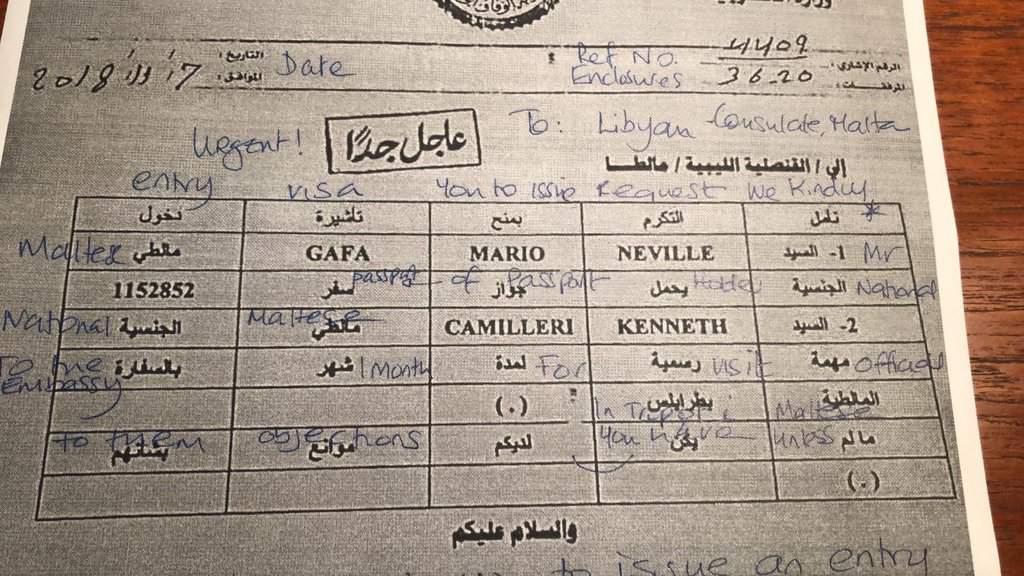 الرقم الإشاري : 4409 Ref No. : التاريخ : Date
المرفقات : 36-20 Enclosures الموافق : 2018/11/17
Urgent! عاجل جدًا To: Libyan Consulate, Malta
إلي / القنصلية الليبية / مالطا
entry visa You to issue Request We Kindly
نأمل * التكرم بمنح تأشيرة دخول
Mr 1- السيد NEVILLE MARIO GAFA مالطي Maltese
National الجنسية يحمل Holder جواز of Passport سفر passport 1152852
2- السيد KENNETH CAMILLERI مالطي Maltese الجنسية National
Official مهمة visit رسمية For لمدة 1 Month شهر بالسفارة To the Embassy
Maltese المالطية In Tripoli بطرابلس (.)
unless مالم You have يكن لديكم objections موانع to them بشأنهم
(.)
والسلام عليكم
to issue an entry